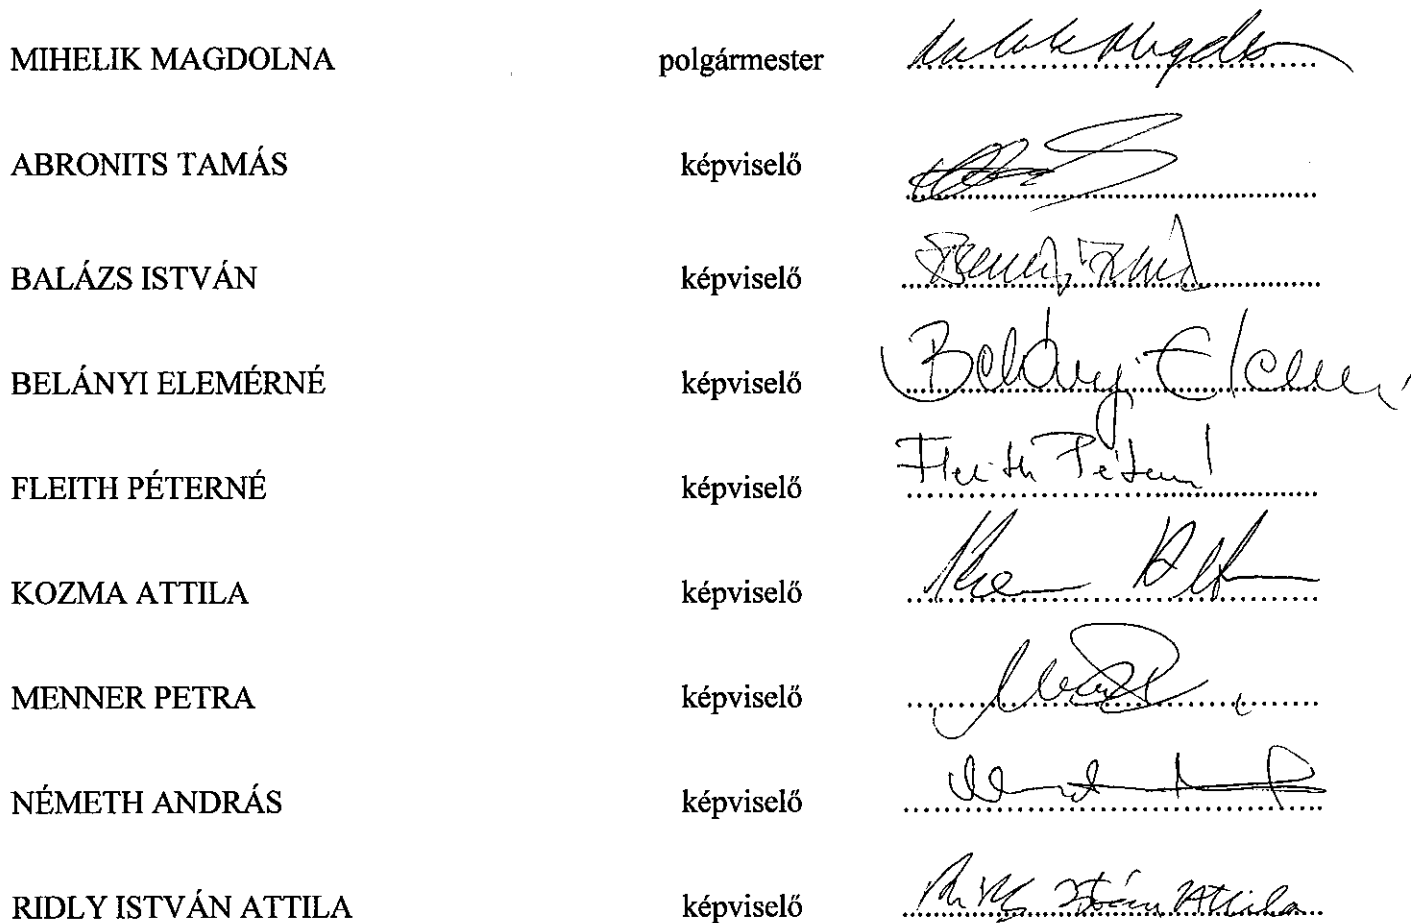 MIHELIK MAGDOLNA polgármester
ABRONITS TAMÁS képviselő
BALÁZS ISTVÁN képviselő
BELÁNYI ELEMÉRNÉ képviselő Belányi Elemérné
FLEITH PÉTERNÉ képviselő Fleith Péterné
KOZMA ATTILA képviselő
MENNER PETRA képviselő
NÉMETH ANDRÁS képviselő
RIDLY ISTVÁN ATTILA képviselő István Attila